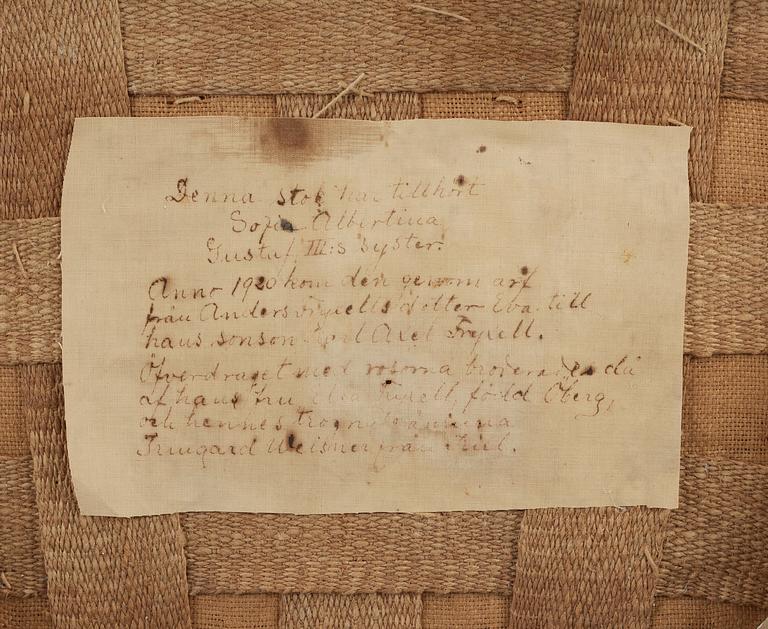 Denna stol har tillhört
Sofia Albertina
Gustaf III:s syster.
Anno 1920 kom den genom arf
från Anders Fryxells dotter Eva till
hans sonson Axel Fryxell.
Öfverdraget med rosorna broderades då
af hans fru Elsa Fryxell, född Öberg,
och hennes trogna
Irmgard Meisner från Kiel.